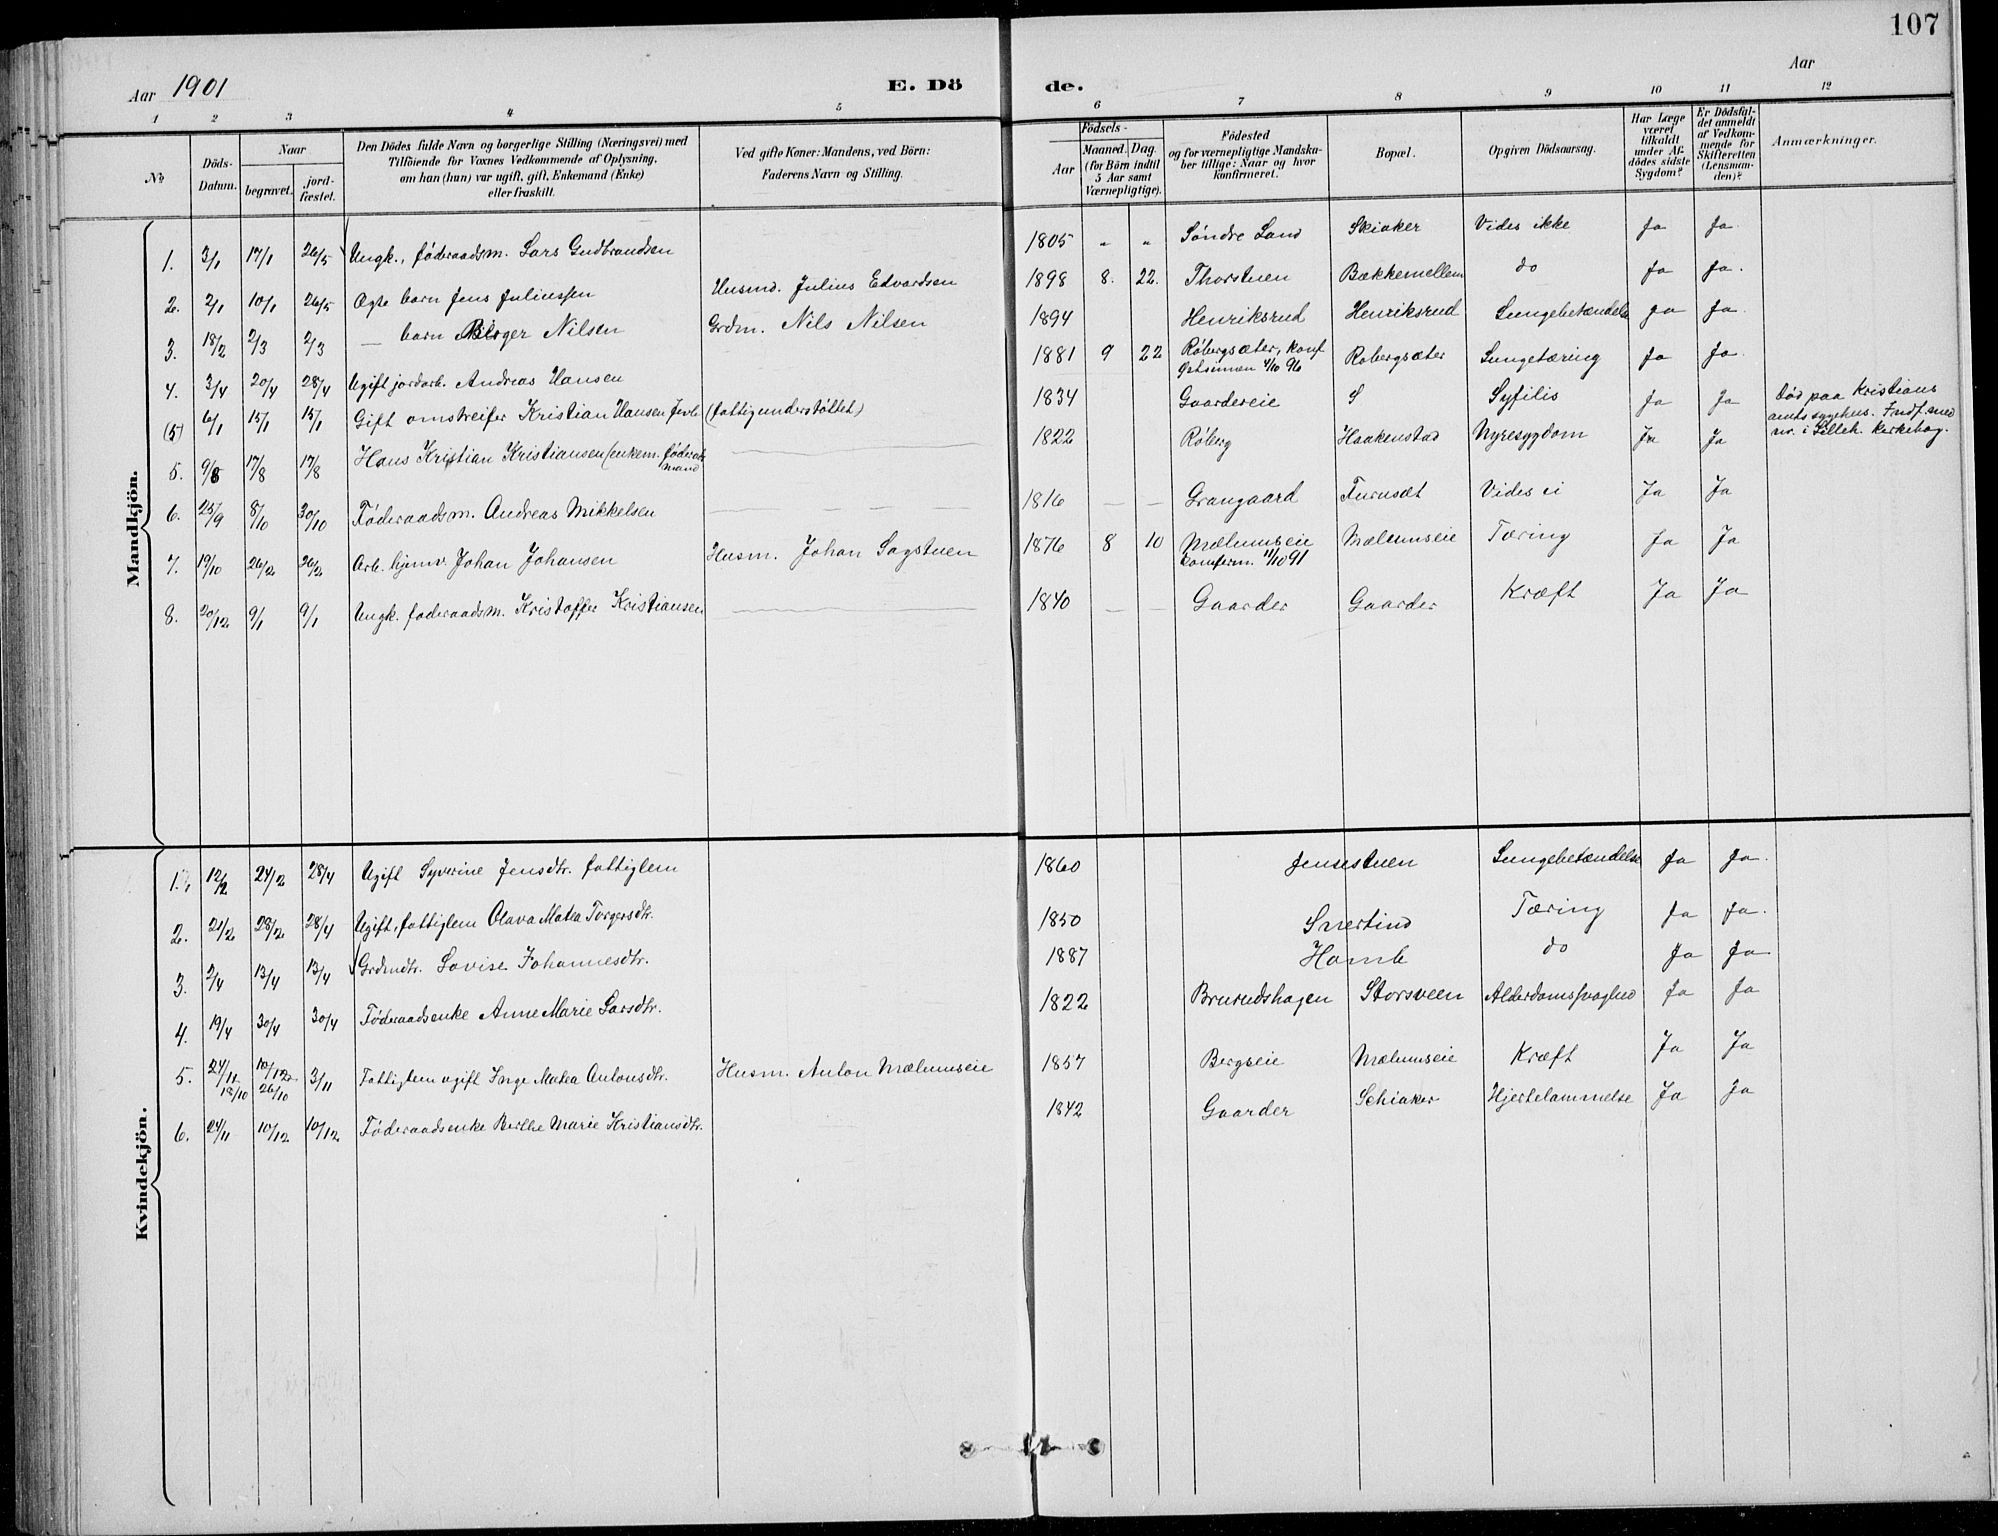 107
Aar 1901 E. Dö de. Aar
1 2 3 4 5 6 7 8 9 10 11 12
No Döds-Datum. Naar begravet. jord-fæstet. Den Dödes fulde Navn og borgerlige Stilling (Næringsvei) med Tilföiende for Voxnes Vedkommende af Oplysning, om han (hun) var ugift, gift, Enkemand (Enke) eller fraskilt. Ved gifte Koner: Mandens, ved Börn: Faderens Navn og Stilling. Födsels- Aar Maaned. Dag. (for Börn indtil 5 Aar samt Værnepligtige). Födested og for værnepligtige Mandskaber tillige: Naar og hvor konfirmeret. Bopæl. Opgiven Dödsaarsag. Har Læge været tilkaldt under Afdödes sidste Sygdom? Er Dödsfaldet anmeldt af Vedkommende for Skifteretten (Lensmanden)? Anmærkninger.
Mandkjön.
1. 3/1 17/1 26/5 Ungk., føderaadsm. Lars Gudbrandsen 1805 " " Søndre Land Skiaker Vides ikke Ja Ja.
2. 2/1 10/1 26/5 Ægte barn Jens Juliussen Husmd. Julius Edvardsen 1898 8. 22. Thorstuen Bækkemellem do Ja Ja.
3. 18/2 2/3 2/3 — barn Birger Nilsen Grdm. Nils Nilsen 1894 Henriksrud Henriksrud Lungebetændelse Ja Ja.
4. 3/4 20/4 28/4 Ugift jordarb. Andreas Hansen 1881 9 22 Røbergsæter, konf 4/10 96 Robergsæter Lungetæring Ja Ja.
(5) 6/1 15/1 15/1 Gift omstreifer Kristian Hansen (fattigunderstøttet) 1834 Gaardereie Syfilis Ja Ja Død paa Kristians amts sygehus. Indf. med nr. i Lilleh. kirkebog.
5. 9/8 17/8 17/8 Hans Kristian Kristiansen (enkem. føderaadsmand 1822 Røberg Haakenstad Nyresygdom Ja Ja
6. 25/9 8/10 30/10 Føderaadsm. Andreas Mikkelsen 1816 — — Grangaard Furuset Vides ei Ja Ja
7. 19/10 26/2 26/2 Arb. hjemv. Johan Johansen Husm. Johan Sagstuen 1876 8 10 Mælumseie konfirm. 11/10 91 Mælumseie Tæring Ja Ja
8. 20/12 9/1 9/1 Ungk. føderaadsm. Kristoffer Kristiansen 1840 — — Gaarder Gaarder Kræft Ja Ja
Kvindekjön.
1. 12/2 24/2 28/4 Ugift Syverine Jensdtr. fattiglem 1860 Jensestuen Lungebetændelse Ja Ja.
2. 21/2 28/2 28/4 Ugift, fattiglem Olava Matea Torgersdtr. 1850 Snertind Tæring Ja Ja.
3. 2/4 13/4 13/4 Grdmdtr. Lovise Johannesdtr. 1887 Homb do Ja Ja
4. 19/4 30/4 30/4 Føderaadsenke Anne Marie Larsdtr. 1822 Brurudshagen Storsveen Alderdomssvaghed Ja Ja
5. 24/11 18/10 10/12 26/10 3/11 Fattiglem ugift Inge Matea Antonsdtr. Husm. Anton Mælumseie 1857 Bergseie Mælumseie Kræft Ja Ja
6. 24/11 10/12 10/12 Føderaadsenke Berthe Marie Kristiansdtr. 1842 Gaarder Schiaker Hjertelammelse Ja Ja